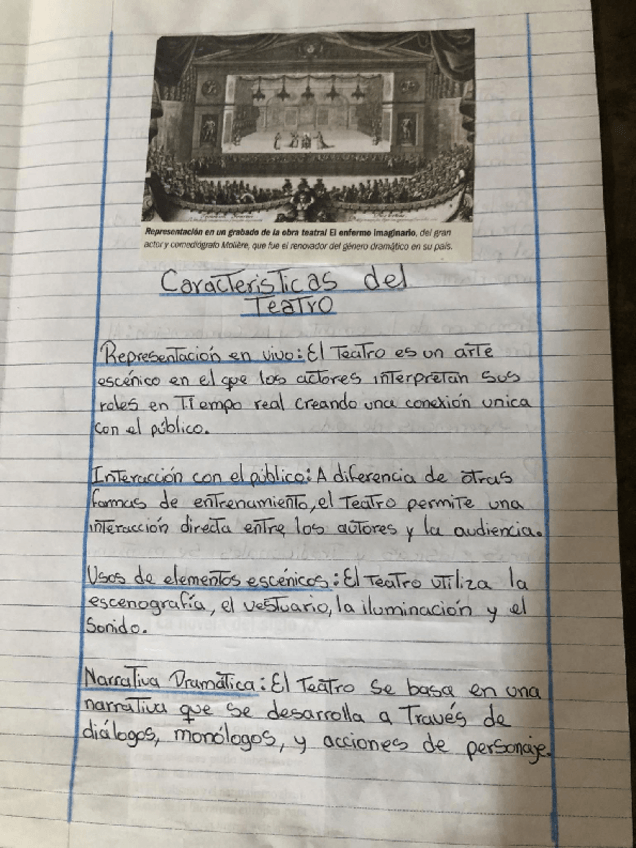 Representación en un grabado de la obra teatral El enfermo imaginario, del gran
actor y comediógrafo Molière, que fue el renovador del género dramático en su país.
Caracteristicas del
Teatro
Representación en vivo: El Teatro es un arte
escénico en el que los actores interpretan sus
roles en Tiempo real creando una conexión unica
con el público.
Interacción con el público: A diferencia de otras
formas de entrenamiento, el Teatro permite una
interacción directa entre los autores y la audiencia.
Usos de elementos escénicos: El Teatro utiliza la
escenografía, el vestuario, la iluminación y el
Sonido.
Narrativa Dramática: El Teatro se basa en una
narrativa que se desarrolla a Través de
diálogos, monólogos, y acciones de personaje.